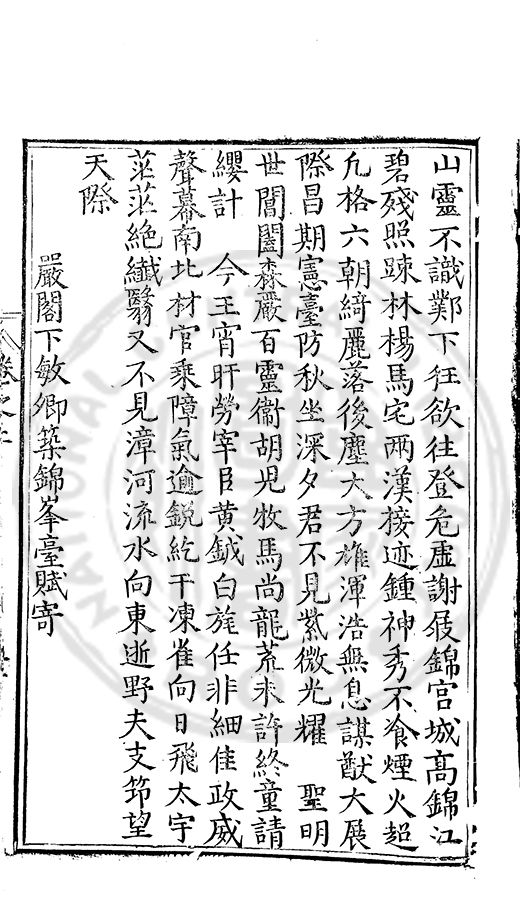 山靈不識鄴下狂欲往登危虛謝屐錦官城高錦江
碧殘照踈林楊馬宅兩漢接迹鍾神秀不飡煙火超
凡格六朝綺麗落後塵大方雄渾浩無息謀猷大展
際昌期憲臺防秋坐深夕君不見紫微光耀　聖明
世閶闔森嚴百靈衞胡児牧馬尚龍荒未許終童請
纓計　今王宵旰勞宰臣黄鉞白旄任非細佳政威
聲幕南北材官乘障氣逾銳紇干凍雀向日飛太宇
茫茫絶纖翳又不見漳河流水向東逝野夫支笻望
天際
嚴閣下敏卿築錦峯臺賦寄